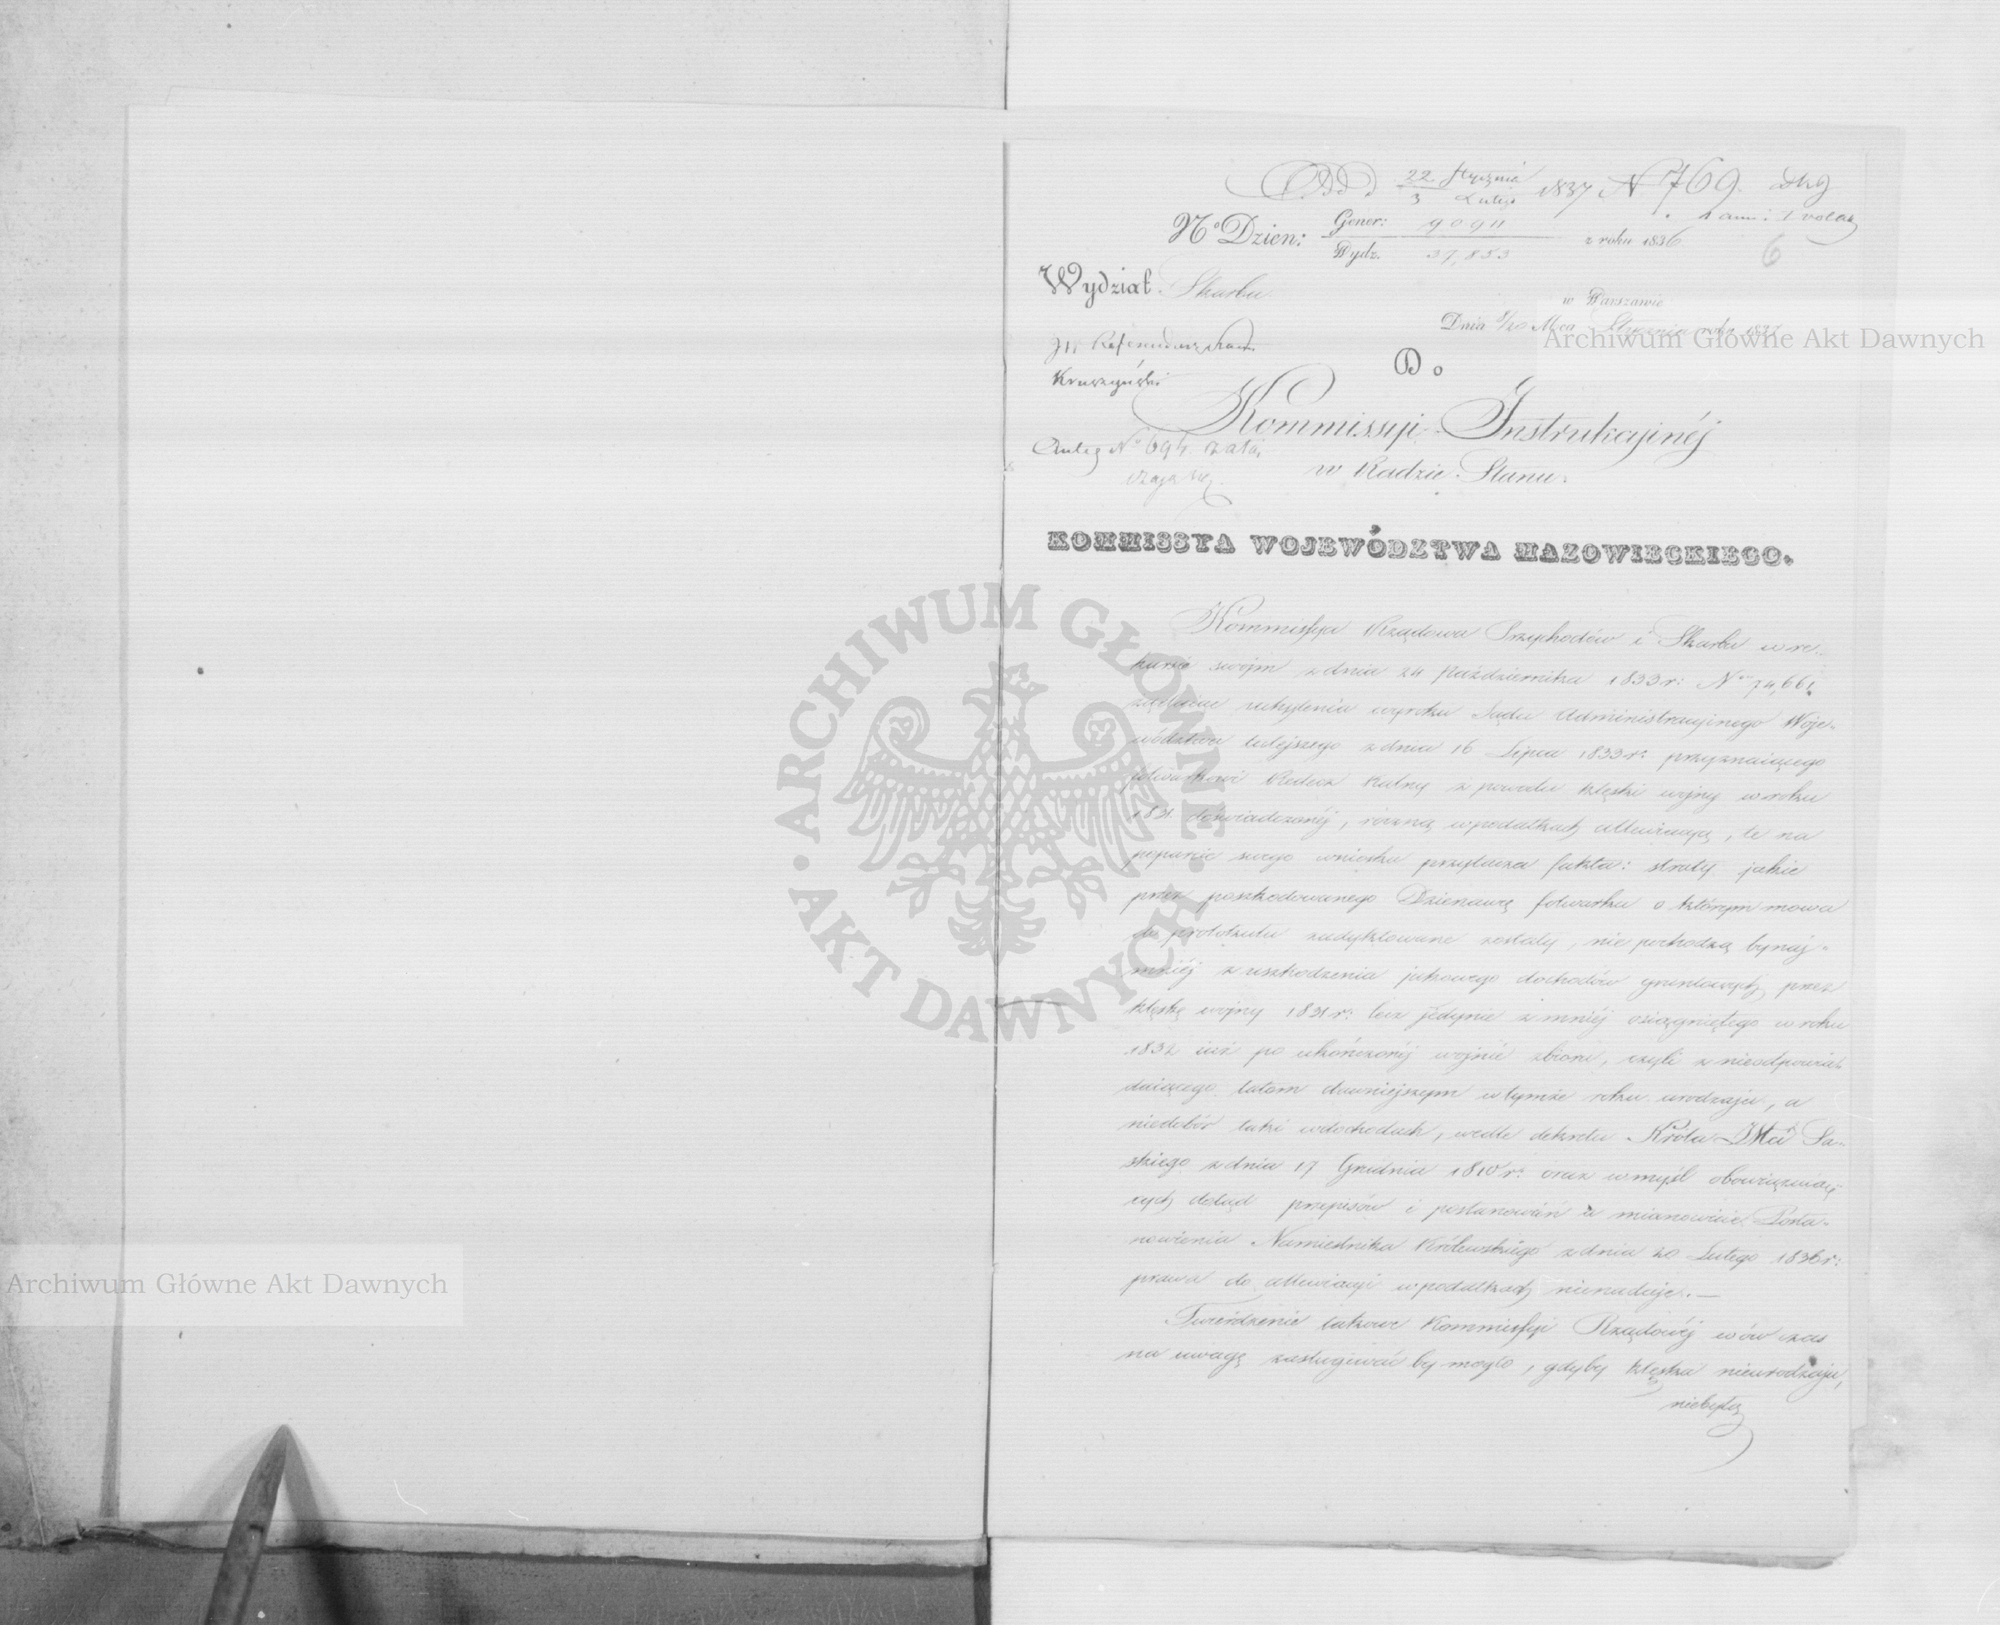 22 Stycznia
3 Lutego
1837 N 769.
N° Dzien: Gener: 9091
Wydz. 37,853
z roku 1836
6
Wydział Skarbu
w Warszawie
Dnia 8/20 Mca Stycznia roku 1837
JW Referendarz Stanu
Kruszyński
Do
Kommissyi Instrukcyinéj
w Radzie Stanu.
N° 694
KOMMISSYA WOJEWÓDZTWA MAZOWIECKIEGO.
Kommissya Rządowa Przychodów i Skarbu w re-
kursie swoim z dnia 24 Października 1833 r: N° 74,661
żądaiąc uchylenia wyroku Sądu Administracyinego Woje-
wództwa tutejszego z dnia 16 Lipca 1833 r: przyznaiącego
folwarkowi Redecz Kalny z powodu klęski wojny w roku
1831 doświadczonéj, roczną w podatkach allewiacyą, te na
poparcie swego wniosku przytacza fakta: straty jakie
przez poszkodowanego Dzierżawcę folwarku o którym mowa
do protokułu zadyktowane zostały, nie pochodzą bynaj-
mniéj z uszkodzenia jakowego dochodów gruntowych przez
klęskę wojny 1831 r: lecz jedynie z mniéj osiągniętego w roku
1832 już po ukończonéj wojnie zbioru, czyli z nieodpowia-
daiącego latom dawniejszym w tymże roku urodzaju, a
niedobór taki w dochodach, wedle dekretu Króla JMci Sa-
skiego z dnia 17 Grudnia 1810 r: oraz w myśl obowiązuią-
cych dotąd przepisów i postanowień a mianowicie Posta-
nowienia Namiestnika Królewskiego z dnia 20 Lutego 1836 r:
prawa do allewiacyi w podatkach nienadaje.—
Twierdzenie takowe Kommissyi Rządowéj wów czas
na uwagę zasługiwać by mogło, gdyby klęska nieurodzaju,
niebyła
ARCHIWUM GŁÓWNE AKT DAWNYCH
Archiwum Główne Akt Dawnych
Archiwum Główne Akt Dawnych